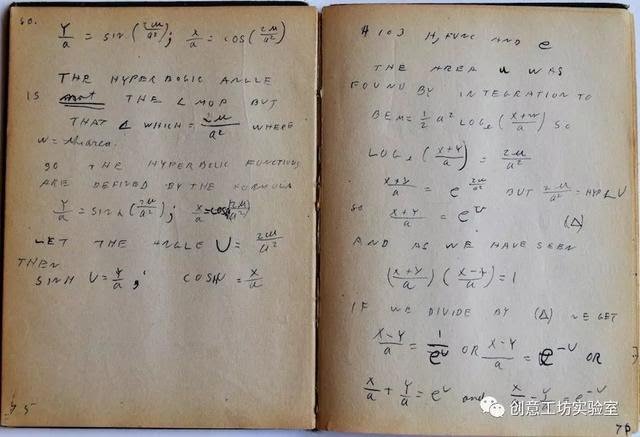 SO.
Y/a = SIN (2u/a²); x/a = COS (2u/a²)
THE HYPERBOLIC ANGLE
IS NOT THE ∠ MOP BUT
THAT ∠ WHICH = 2u/a² WHERE
u = the area.
SO THE HYPERBOLIC FUNCTIONS
ARE DEFINED BY THE FORMULA
Y/a = SINh (2u/a²); x/a = COSh (2u/a²)
LET THE ANGLE U = 2u/a²
THEN
SINH U = Y/a; COSH = X/a
75
# 103 H, FUNC AND e
THE AREA u WAS
FOUND BY INTEGRATION TO
BE M = 1/2 a² LOGe (x+y/a) SO
LOGe (x+y/a) = 2u/a²
x+y/a = e^2u/a² BUT 2u/a² = HYP ∠ U
SO x+y/a = e^U (Δ)
AND AS WE HAVE SEEN
(x+y/a) (x-y/a) = 1
IF WE DIVIDE BY (Δ) WE GET
X-Y/a = 1/e^U OR X-Y/a = e^-U OR
X/a + Y/a = e^U and X/a - Y/a = e^-U
创意工坊实验室